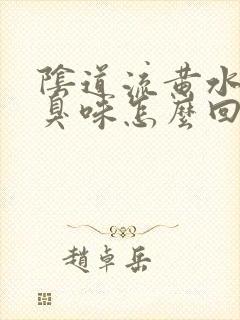 陰道流黃水
臭味怎麼回
趙卓岳